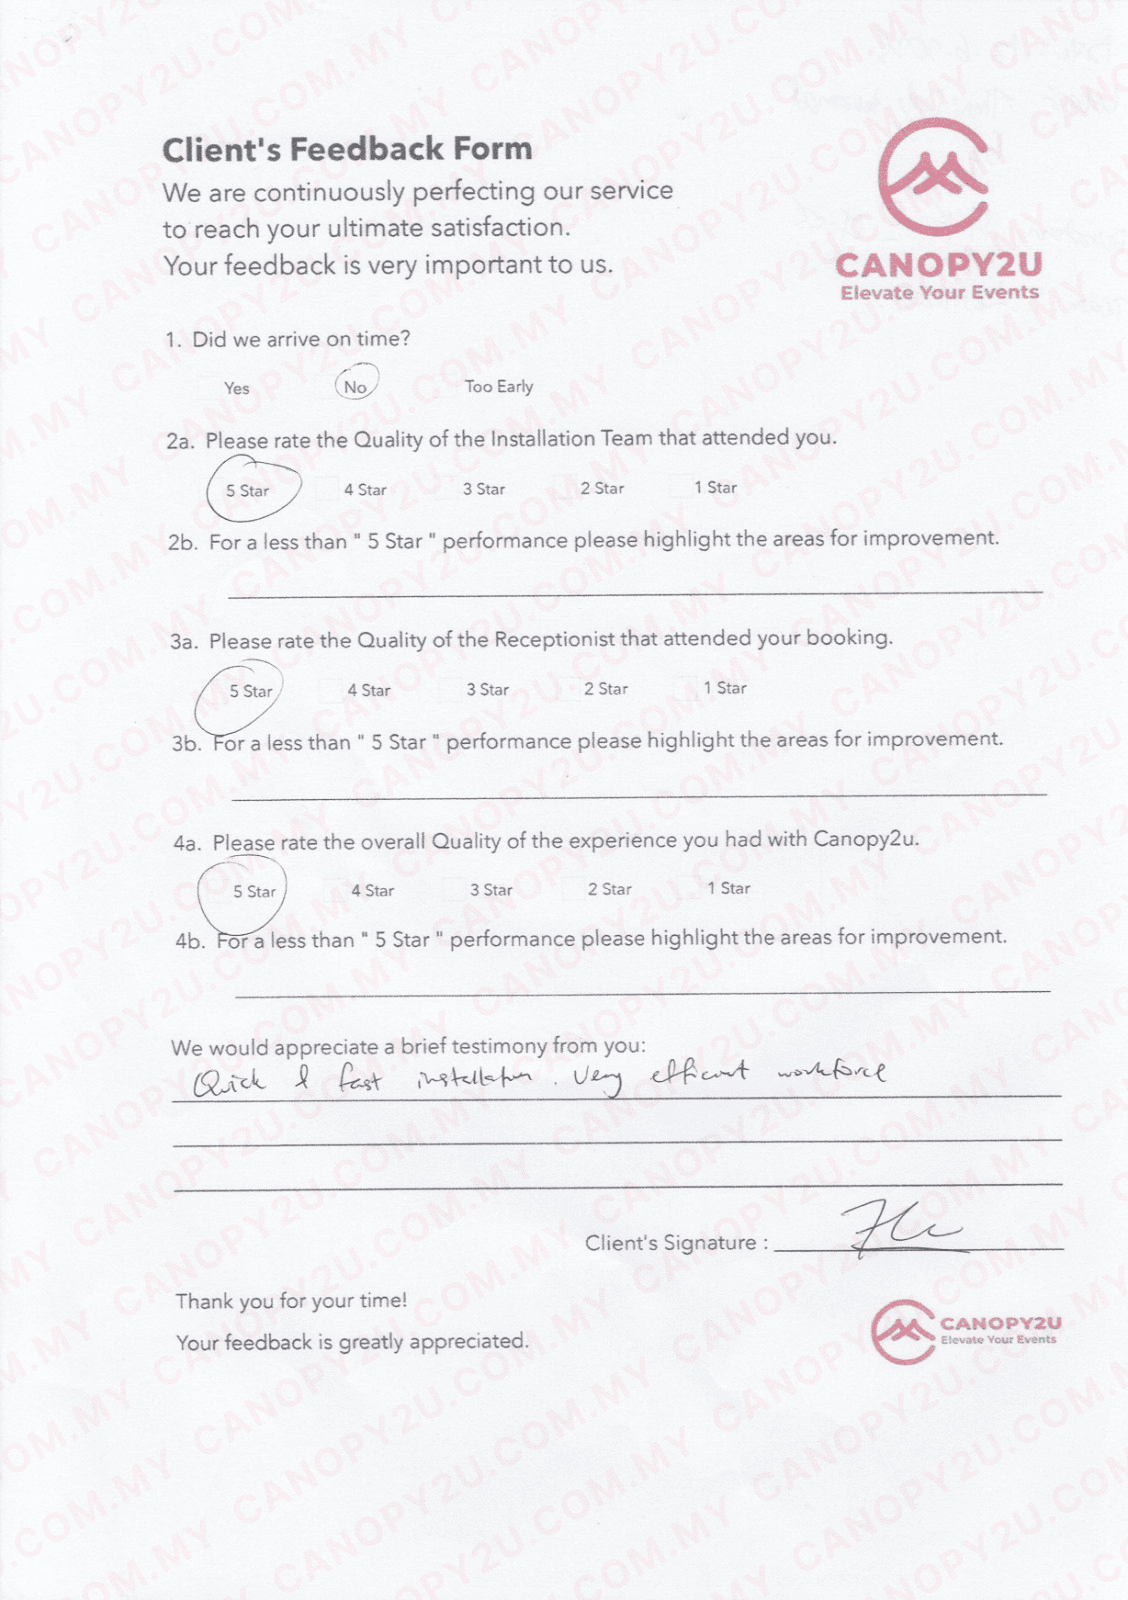 Client's Feedback Form
We are continuously perfecting our service
to reach your ultimate satisfaction.
Your feedback is very important to us.
CANOPY2U
Elevate Your Events
1. Did we arrive on time?
Yes No Too Early
2a. Please rate the Quality of the Installation Team that attended you.
5 Star 4 Star 3 Star 2 Star 1 Star
2b. For a less than " 5 Star " performance please highlight the areas for improvement.
3a. Please rate the Quality of the Receptionist that attended your booking.
5 Star 4 Star 3 Star 2 Star 1 Star
3b. For a less than " 5 Star " performance please highlight the areas for improvement.
4a. Please rate the overall Quality of the experience you had with Canopy2u.
5 Star 4 Star 3 Star 2 Star 1 Star
4b. For a less than " 5 Star " performance please highlight the areas for improvement.
We would appreciate a brief testimony from you:
Quick & fast installation. Very efficient workforce
Client's Signature :
Thank you for your time!
Your feedback is greatly appreciated.
CANOPY2U
Elevate Your Events
CANOPY2U.COM.MY